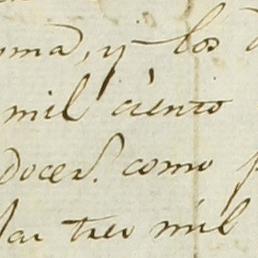 oma, y los
mil ciento
docer. como p
lar tres mil